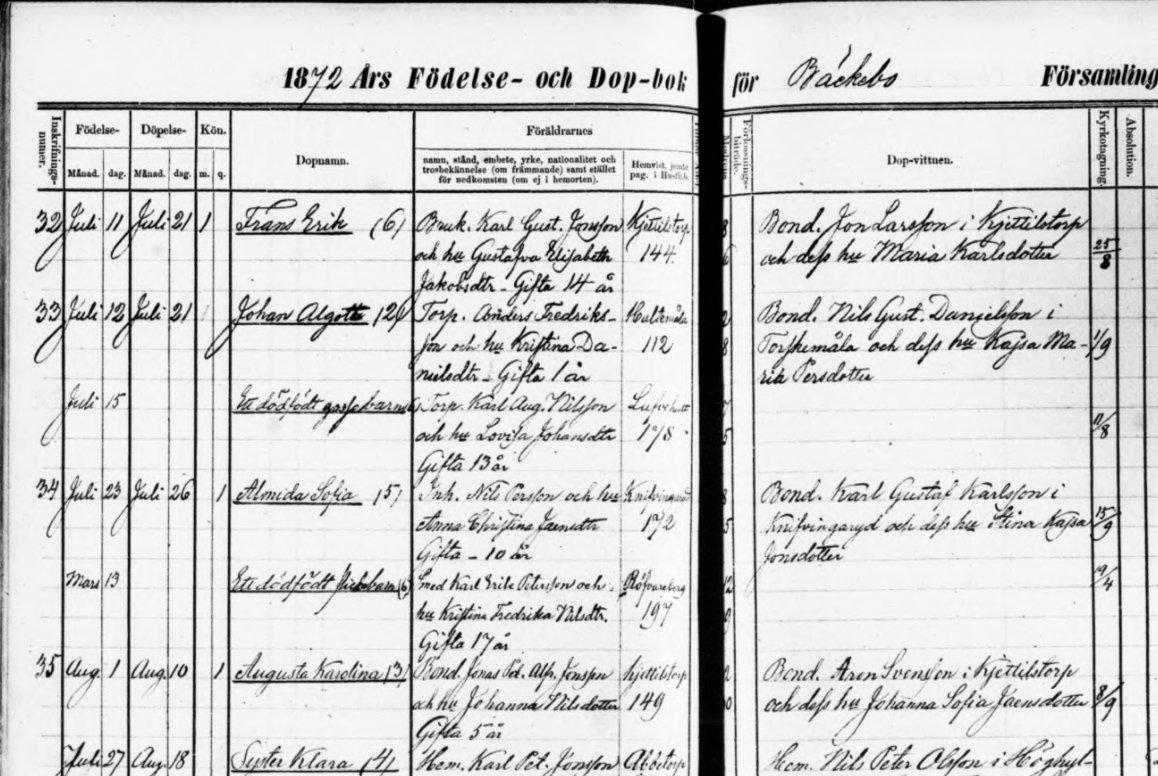 1872 Års Födelse- och Dop-bok för Bäckebo Församling
Inskrifnings-
numer.
Födelse-
Månad. dag.
Döpelse-
Månad. dag.
Kön.
m. q.
Dopnamn.
Föräldrarnes
namn, stånd, embete, yrke, nationalitet och
trosbekännelse (om främmande) samt stället
för nedkomsten (om ej i hemorten).
Hemvist, jemte
pag. i Husf.b.
Förlossnings-
biträde.
Dop-vittnen.
Kyrkotagning.
Absolution.
32 Juli 11 Juli 21 1 Frans Erik (6) Bruk. Karl Gust. Jonsson Kjettilstorp 8 Bond. Jon Larsson i Kjettilstorp
och hu Gustafva Elisabeth 144. 6 och dess hu Maria Karlsdotter 25/8
Jakobsdtr - Gifta 14 år
33 Juli 12 Juli 21 1 Johan Algott (26) Torp. Anders Fredriks- Hultemåla 2 Bond. Nils Gust. Danielsson i
son och hu Kristina Da- 112 8 Torskemåla och dess hu Kajsa Ma- 1/9
nielsdtr - Gifta 1 år ria Persdotter
Juli 15 Ett dödfödt gossebarn Torp. Karl Aug. Nilsson
och hu Lovisa Johansdtr 178 5 11/8
Gifta 13 år
34 Juli 23 Juli 26 1 Almida Sofia (5) Inh. Nils Persson och hu Knifvingaryd 8 Bond. Karl Gustaf Karlsson i
Anna Christina Jaensdtr 172 5 Knifvingaryd och dess hu Stina Kajsa 15/9
Gifta - 10 år Jonsdotter
Mars 13 Ett dödfödt flickebarn (6) Smed Karl Erik Petersson och 12 19/4
hu Kristina Fredrika Nilsdtr. 197 9
Gifta 17 år
35 Aug 1 Aug. 10 1 Augusta Karolina (3) Bond. Jonas Pet. Alfr. Jonsson Kjettilstorp 2 Bond. Aron Svensson i Kjettilstorp
och hu Johanna Nilsdotter 149 0 och dess hu Johanna Sofia Jaensdotter 8/9
Gifta 5 år
Juli 27 Aug. 18 Klara (4) Hem. Karl Pet. Jonsson Hem. Nils Peter Olsson i Höghyl-